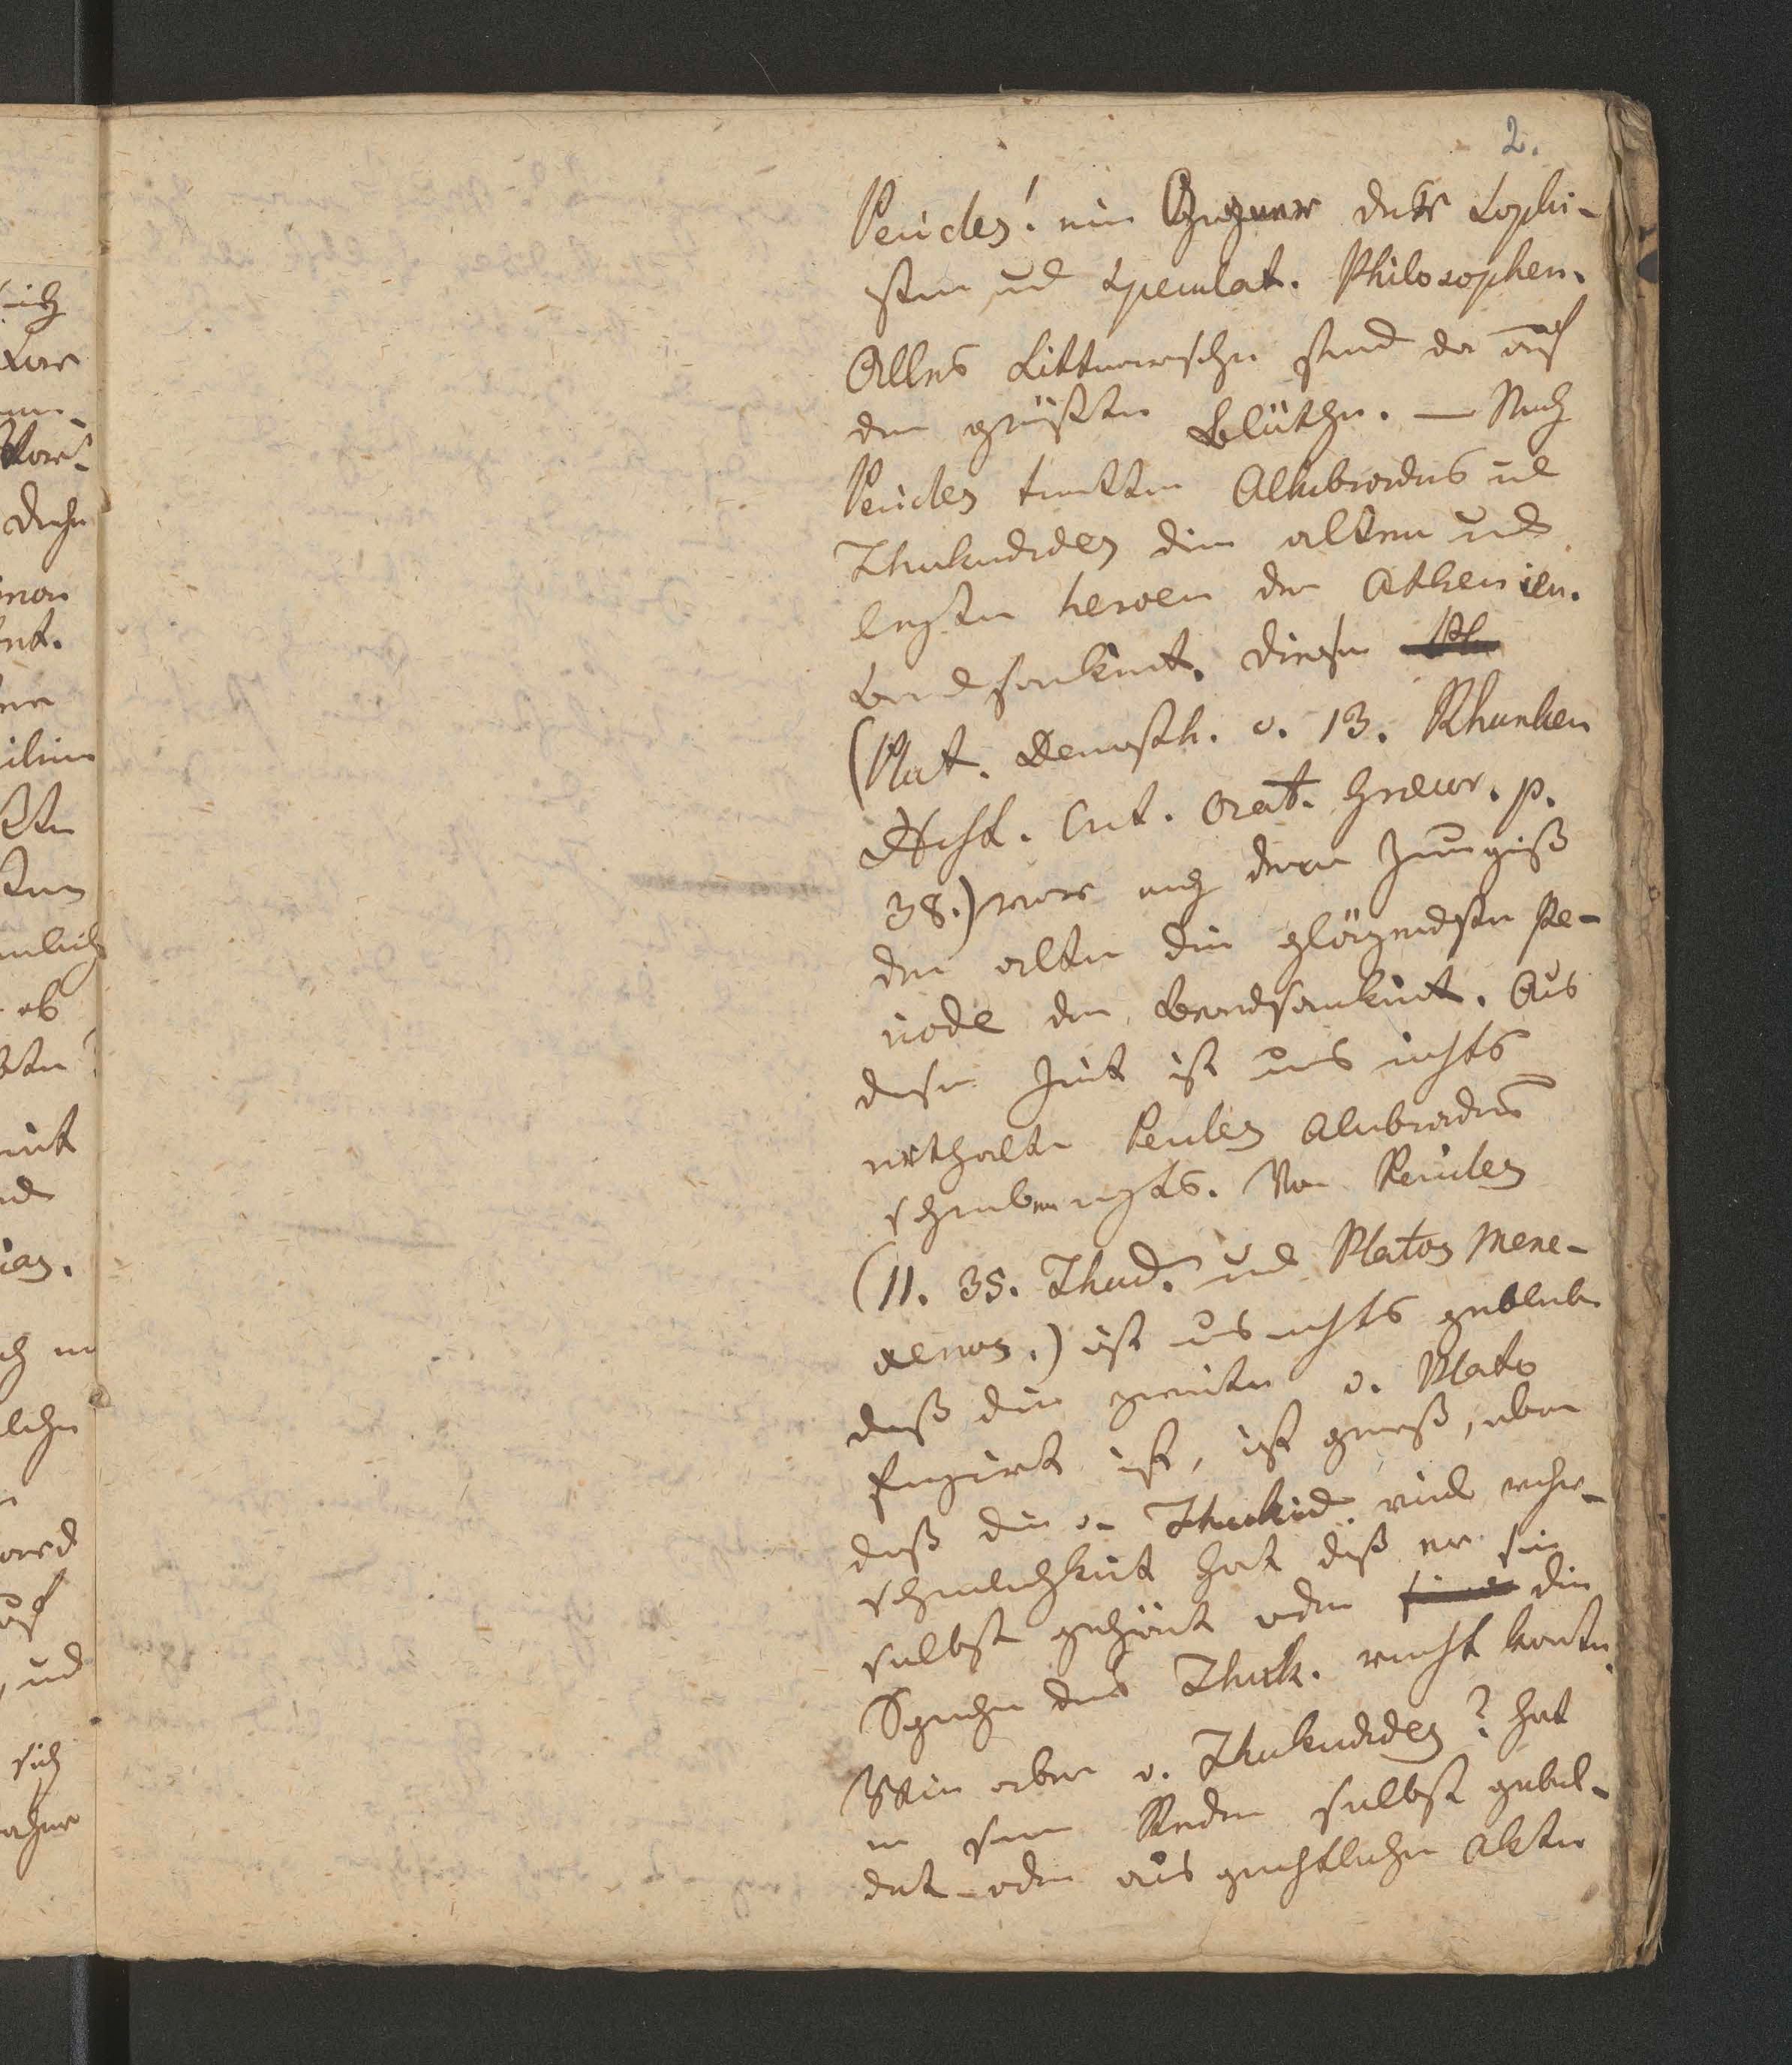 2.
Pericles! ein Gegner der Sophi-
sten und Speculat. Philosophen.
Alles Litterarische stand da auf
der größten Blüthe. — Nach
Pericles tratten Alkibiades ud
Thukidides die alten und
ersten heroen der Athenien.
Beredsamkeit. Diese
(Plut. Demosth. c. 13. Rhunken
Hist. Crit. Orat. Graecor. p.
38.) war nach dem Zeugniß
der alten die glänzendste Pe-
riode der Beredsamkeit. Aus
dieser Zeit ist uns nichts
erhalten Pericles Alcibiades
schrieben nichts. Von Pericles
(11. 35. Thucid. und Platos Mene-
xenos.) ist uns nichts geblieben
daß die zweite v. Plato
fingirt ist, ist gewiß, aber
daß die v. Thukid. viel wahr-
scheinlichkeit hat daß er sie
selbst gehört oder die
Sprache des Thuk. nicht konnte.
Wie aber v. Thukidides? hat
er seine Reden selbst gebil-
det oder aus gerichtlichen Akten